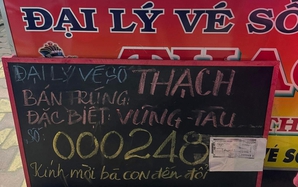 ĐẠI LÝ VÉ SỐ
THẠCH
ĐẠI LÝ VÉ SỐ THẠCH
BÁN TRÚNG:
ĐẶC BIỆT VŨNG-TÀU
000248
Kính mời bà con đến đổi
VÉ SỐ